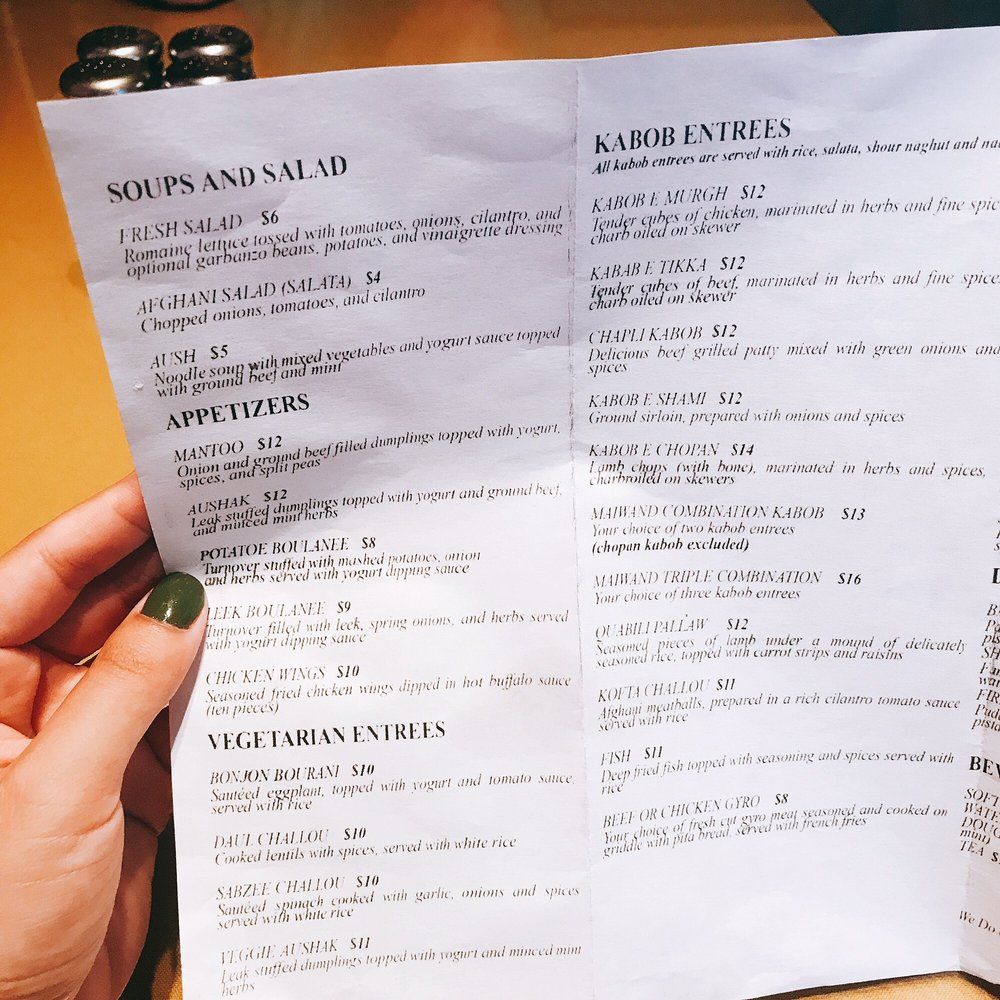 SOUPS AND SALAD
FRESH SALAD $6
Romaine lettuce tossed with tomatoes, onions, cilantro, and
optional garbanzo beans, potatoes, and vinaigrette dressing
AFGHANI SALAD (SALATA) $4
Chopped onions, tomatoes, and cilantro
AUSH $5
Noodle soup with mixed vegetables and yogurt sauce topped
with ground beef and mint
APPETIZERS
MANTOO $12
Onion and ground beef filled dumplings topped with yogurt,
spices, and split peas
AUSHAK $12
Leak stuffed dumplings topped with yogurt and ground beef,
and minced mint herbs
POTATOE BOULANEE $8
Turnover stuffed with mashed potatoes, onion
and herbs served with yogurt dipping sauce
LEEK BOULANEE $9
Turnover filled with leek, spring onions, and herbs served
with yogurt dipping sauce
CHICKEN WINGS $10
Seasoned fried chicken wings dipped in hot buffalo sauce
(ten pieces)
VEGETARIAN ENTREES
BONJON BOURANI $10
Sautéed eggplant, topped with yogurt and tomato sauce,
served with rice
DAUL CHALLOU $10
Cooked lentils with spices, served with white rice
SABZEE CHALLOU $10
Sautéed spinach cooked with garlic, onions and spices
served with white rice
VEGGIE AUSHAK $11
Leak stuffed dumplings topped with yogurt and minced mint
herbs
KABOB ENTREES
All kabob entrees are served with rice, salata, shour naghut and
KABOB E MURGH $12
Tender cubes of chicken, marinated in herbs and fine
charb oiled on skewer
KABAB E TIKKA $12
Tender cubes of beef, marinated in herbs and fine spices
charb oiled on skewer
CHAPLI KABOB $12
Delicious beef grilled patty mixed with green onions and
spices
KABOB E SHAMI $12
Ground sirloin, prepared with onions and spices
KABOB E CHOPAN $14
Lamb chops (with bone), marinated in herbs and spices,
charbroiled on skewers
MAIWAND COMBINATION KABOB $13
Your choice of two kabob entrees
(chopan kabob excluded)
MAIWAND TRIPLE COMBINATION $16
Your choice of three kabob entrees
QUABILI PALLAW $12
Seasoned pieces of lamb under a mound of delicately
seasoned rice, topped with carrot strips and raisins
KOFTA CHALLOU $11
Afghani meatballs, prepared in a rich cilantro tomato sauce
served with rice
FISH $11
Deep fried fish topped with seasoning and spices served with
rice
BEEF OR CHICKEN GYRO $8
Your choice of fresh cut gyro meat seasoned and cooked on
griddle with pita bread, served with french fries
TEA
We Do